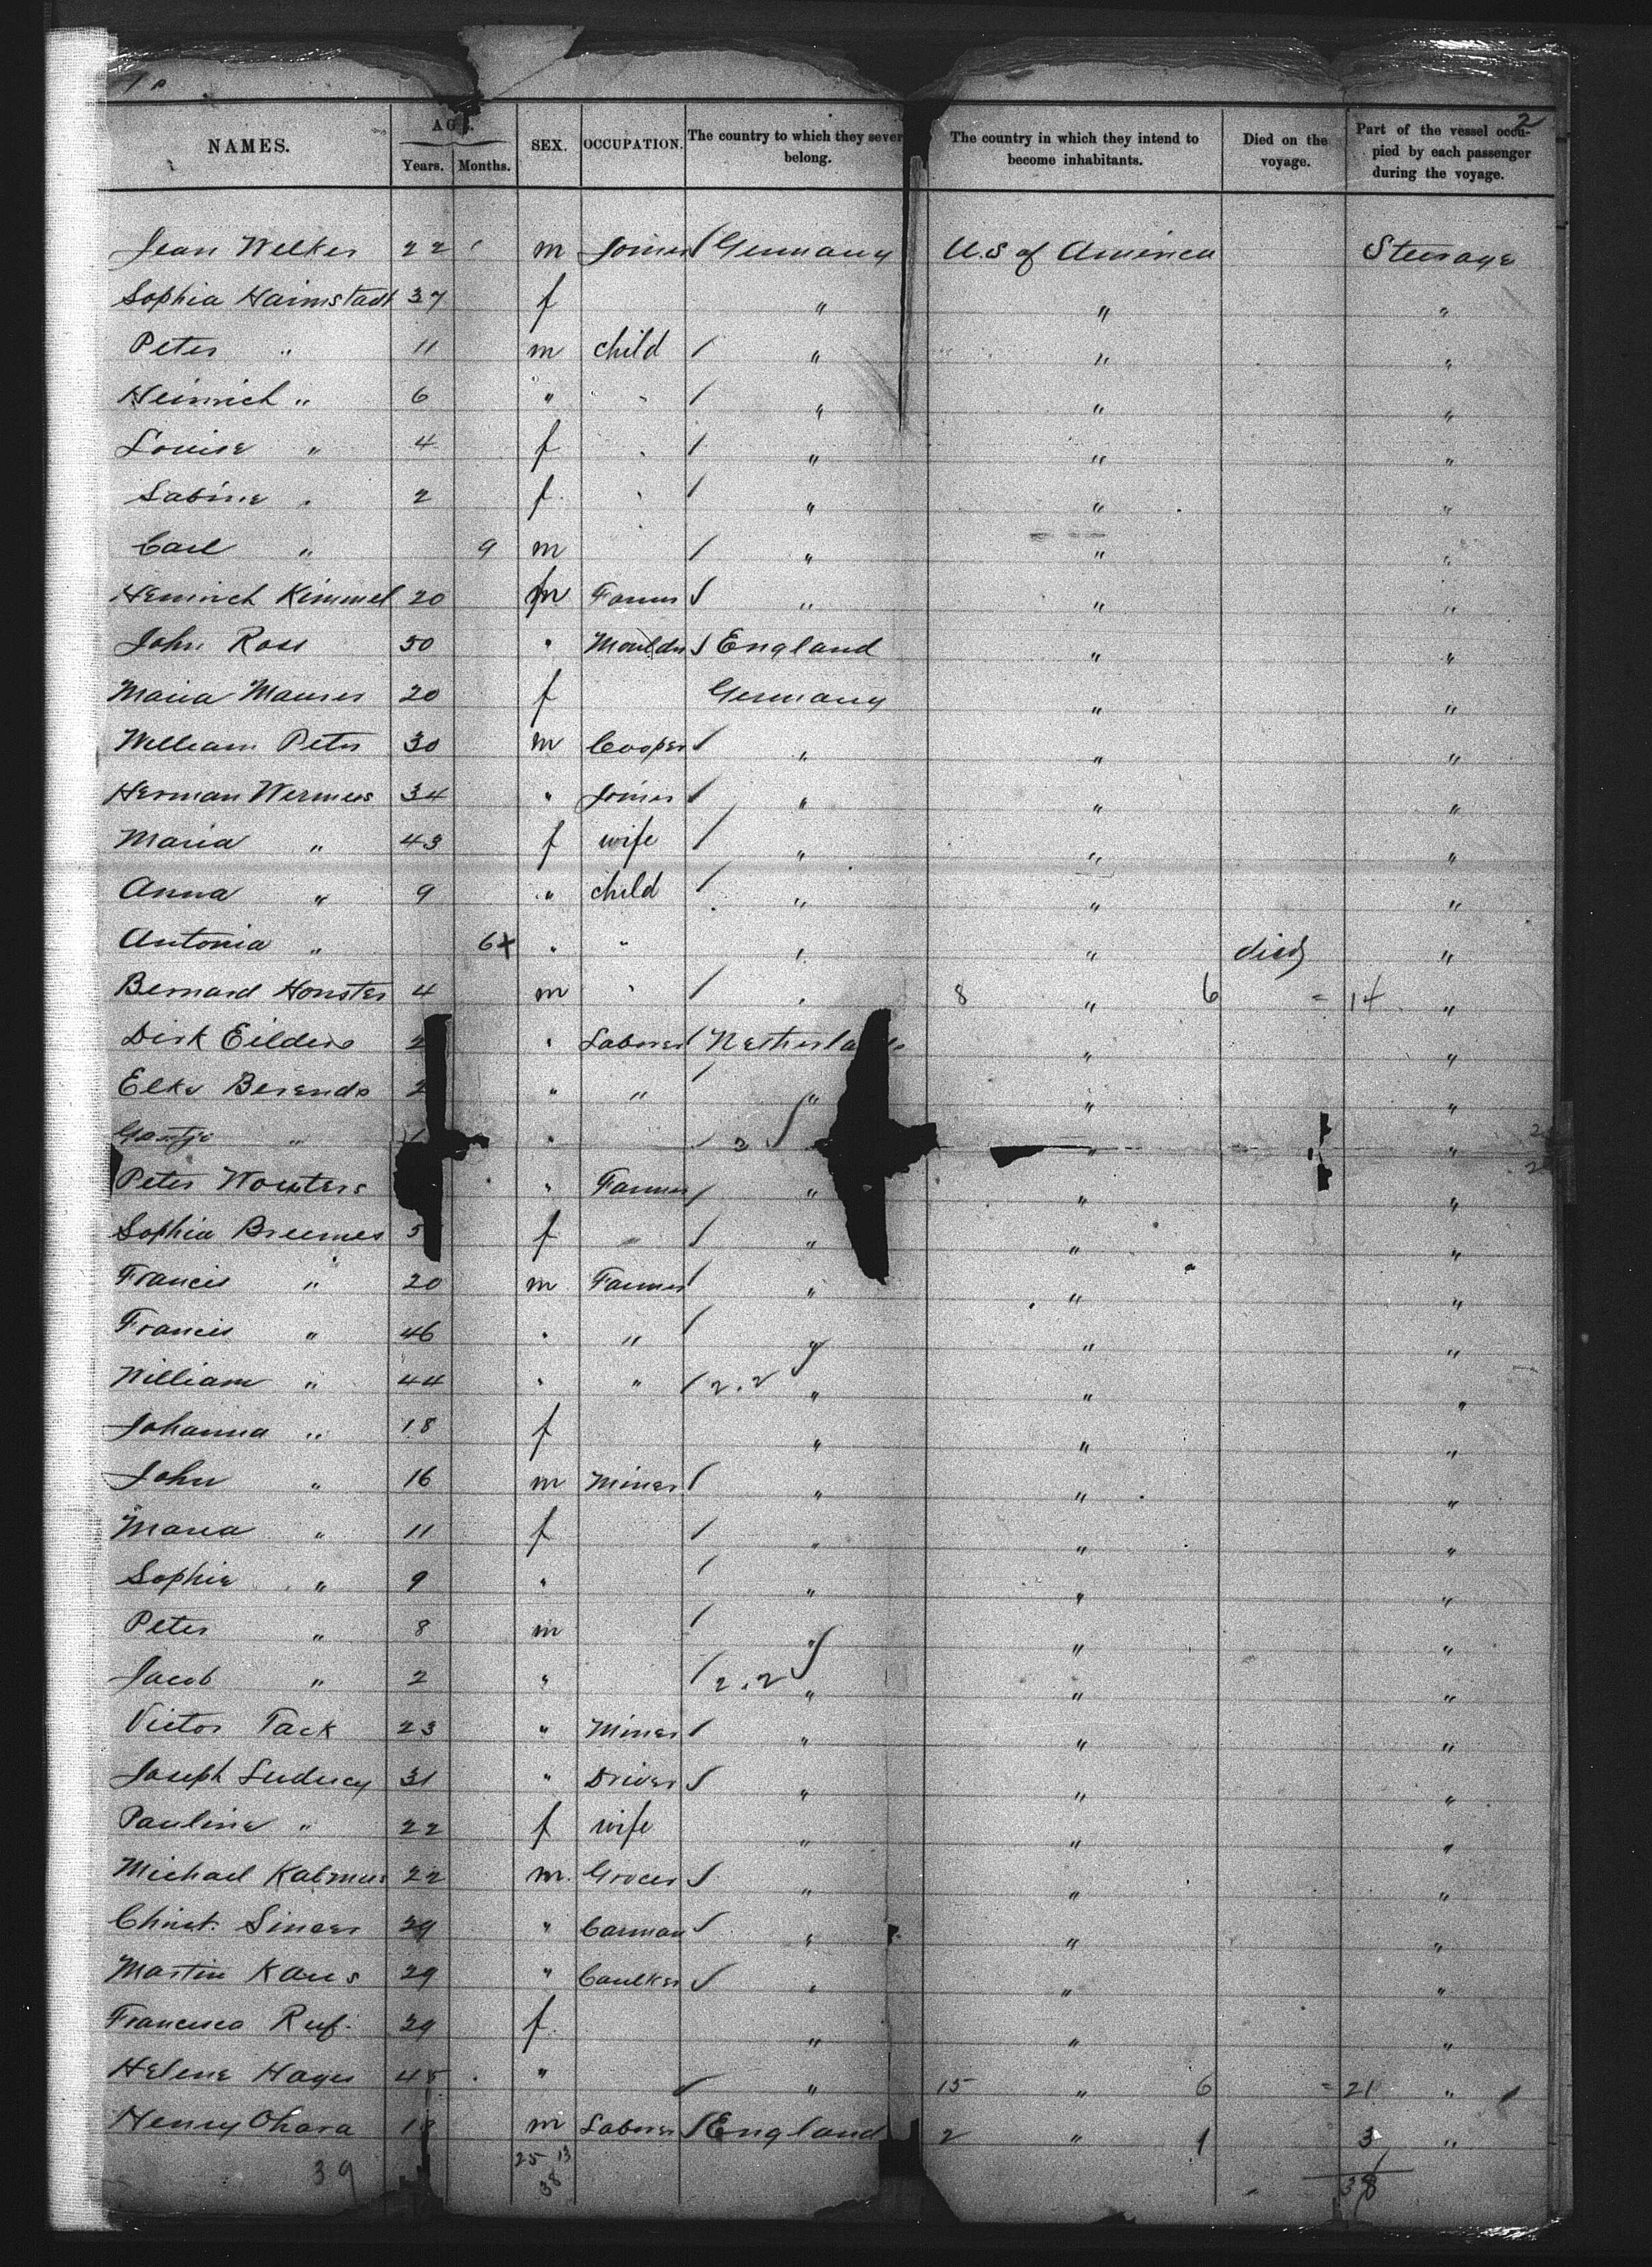 10
2
NAMES. AGE. SEX. OCCUPATION. The country to which they sever belong. The country in which they intend to become inhabitants. Died on the voyage. Part of the vessel occupied by each passenger during the voyage.
Years. Months.
Jean Welker 22 m Joiner Germany U.S of America Steerage
Sophia Haimstadt 37 f " " "
Peter " 11 m child " " "
Heinrich " 6 " " " " "
Louise " 4 f " " " "
Sabine " 2 f " " " "
Carl " 9 m " " "
Heinrich Kimmel 20 m Farmer " " "
John Ross 50 " Moulder England " "
Maria Maurer 20 f Germany " "
William Peter 30 m Cooper " " "
Herman Wermers 34 " Joiner " " "
Maria " 43 f wife " " "
Anna " 9 " child " " "
Antonia " 6+ " " " " died "
Bernard Honster 4 m " " 8 " 6 = 14 "
Dirk Eilders 2 " Laborer Netherla " "
Elke Berends 2 " " " " "
Gastje " " 2 " "
Peter Wouters " Farmer " " "
Sophia Breemer 5 f " " "
Francis " 20 m Farmer " " "
Francis " 46 " " " " "
William " 44 " " 2.2 " " "
Johanna " 18 f " " "
John " 16 m Miner " " "
Maria " 11 f " " "
Sophie " 9 " " " "
Peter " 8 m " " "
Jacob " 2 " 2.2 " " "
Victor Tack 23 " Miner " " "
Joseph 31 " Driver " " "
Pauline " 22 f wife " " "
Michael 22 m. Grocer " " "
Christ. Siners 29 " Carman " " "
Martin Kaus 29 " Caulker " " "
Francisca Ruf. 29 f. " " "
Helene Hayer 45 " " 15 " 6 = 21 "
Henry Ohara m Laborer England 2 " 1 3 "
39 25 13 38
38